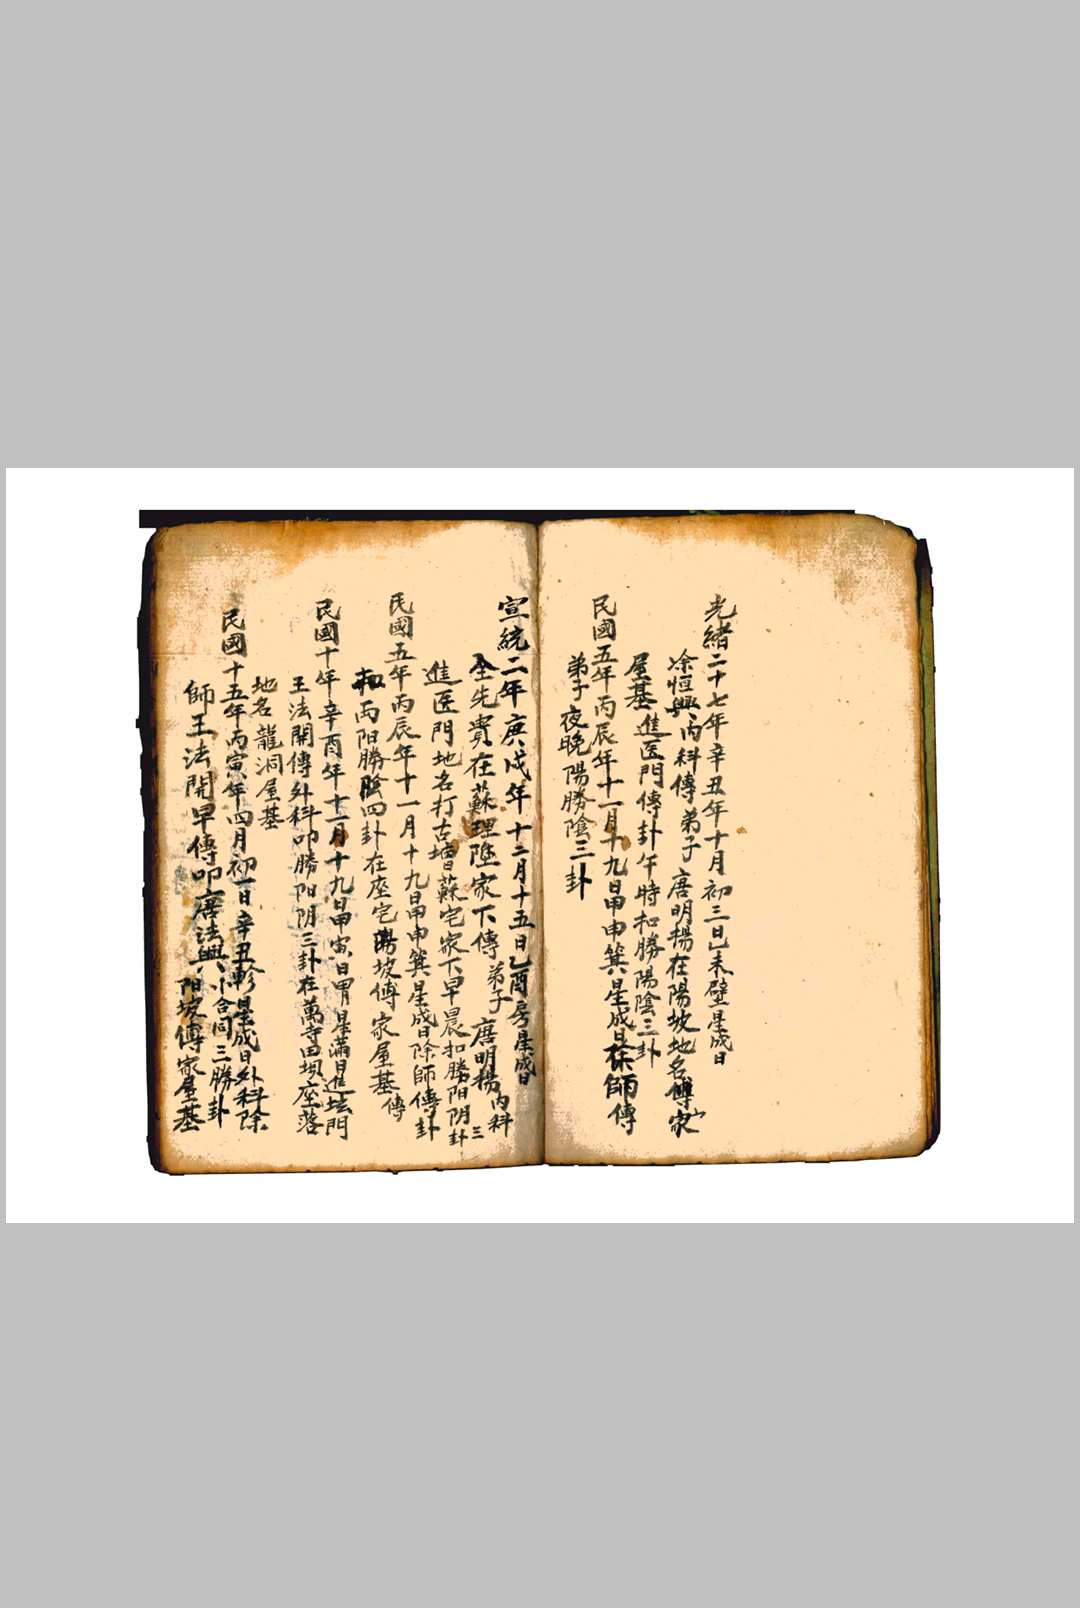 光緒二十七年辛丑年十月初三日乙未壁星成日
涂恒興内科傳弟子唐明揚在陽坡地名傅家
屋基進医門傳卦午時扣勝陽陰三卦
民國五年丙辰年十一月十九日甲申箕星成日徐師傳
弟子夜晚陽勝陰三卦
宣統二年庚戌年十二月十五日乙酉房星成日
全先貴在蘇理陞家下傳弟子唐明揚内科
進医門地名打古壋蘇宅家下早晨扣勝阳阴三卦
民國五年丙辰年十一月十九日甲申箕星成日除師傳卦
扣丙阳勝陰四卦在座宅陽坡傅家屋基傳
民國十年辛酉年十一月十九日甲寅日胃星滿日進坛門
王法開傳外科叩勝阳阴三卦在萬寺田坝座落
地名龍洞屋基
民國十五年丙寅年四月初一日辛丑軫星成日外科除
師王法開早傳叩唐法興小合同三勝卦
阳坡傅家屋基